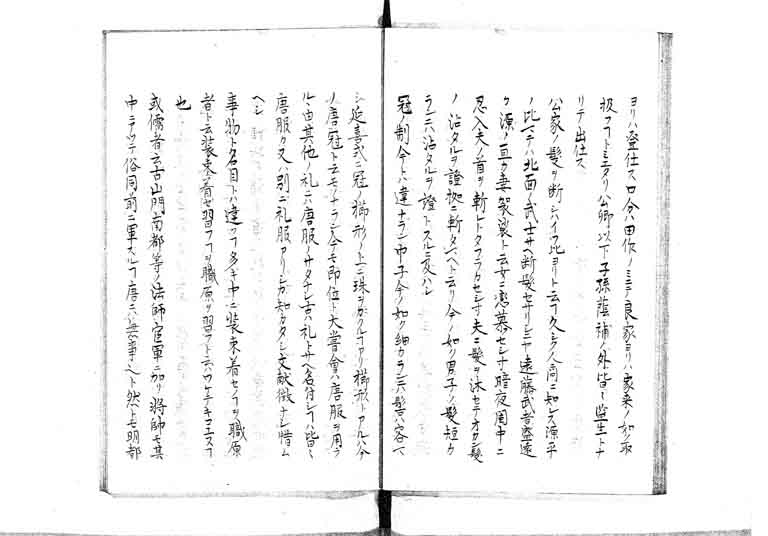 ヨリハ登仕ス口今ハ田作ノミニテ良家ヨリハ家来ノ如ク取
扱フトミヘタリ公卿以下子孫蔭補ノ外皆〻監生トナ
リテ出仕ス
公家ノ髪ヲ断シイツ比ヨリト云フ久シク人間ニ知レス源平
ノ比マテハ北面ノ武士サヘ断髪セサリシニヤ遠藤武者盛遠
カ源ノ亘カ妻袈裟ト云女ニ恋慕セシ寸暗夜閨中ニ
忍入夫ノ首ヲ斬レトタフラカセシ寸夫ニ髪ヲ沐セテオカン髪
ノ沾タルヲ證拠ニ斬タマヘト云リ今ノ如ク男子ノ髪短カ
ランニハ沾タルヲ證トスルニ及ハシ
冠ノ制今トハ違ナラン巾子今ノ如ク細カランニハ髻ハ容ヘ
シ延喜式ニ冠ノ櫛形ノ上ニ珠ヲカクルフアリ櫛形トアルハ今
ノ唐冠ト云モノナラン今モ即位ト大嘗會ハ唐服ヲ用ラ
ルヽ由其他ノ礼ニ唐服ノサタナシ古ハ礼トサヘ名付シイハ皆〻
唐服カ又ハ別ニ礼服アリシカ知カタシ文献徴ナシ惜ム
ヘシ
事ノ物ト名目トハ違フフ多キ中ニ装束着セイヲ職原
者ト云装束着セ習フフヲ職原ヲ習フト云ハワケテキコエヌフ
也
或儒者云古山門南都等ノ法師官軍ニ加リ将帥モ其
中ニアリテ俗同前ニ軍スルフ唐ニハ無事ヘト然トモ明ノ部